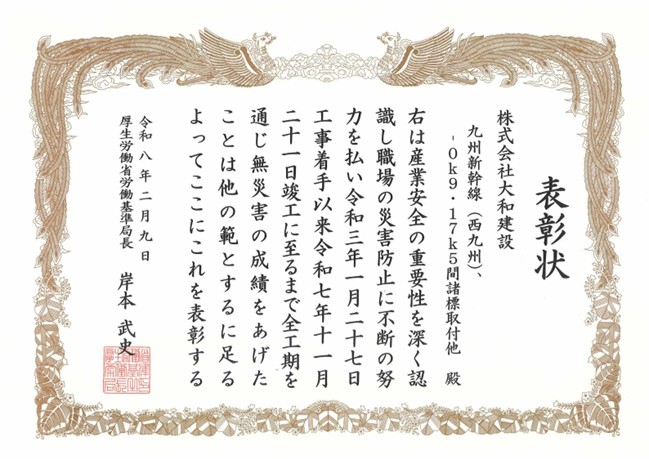 表彰状
株式会社大和建設
九州新幹線（西九州）、
-0k9・17k5間諸標取付他 殿
右は産業安全の重要性を深く認
識し職場の災害防止に不断の努
力を払い令和三年一月二十七日
工事着手以来令和七年十一月
二十一日竣工に至るまで全工期を
通じ無災害の成績をあげた
ことは他の範とするに足る
よってここにこれを表彰する
令和八年二月九日
厚生労働省労働基準局長 岸本 武史